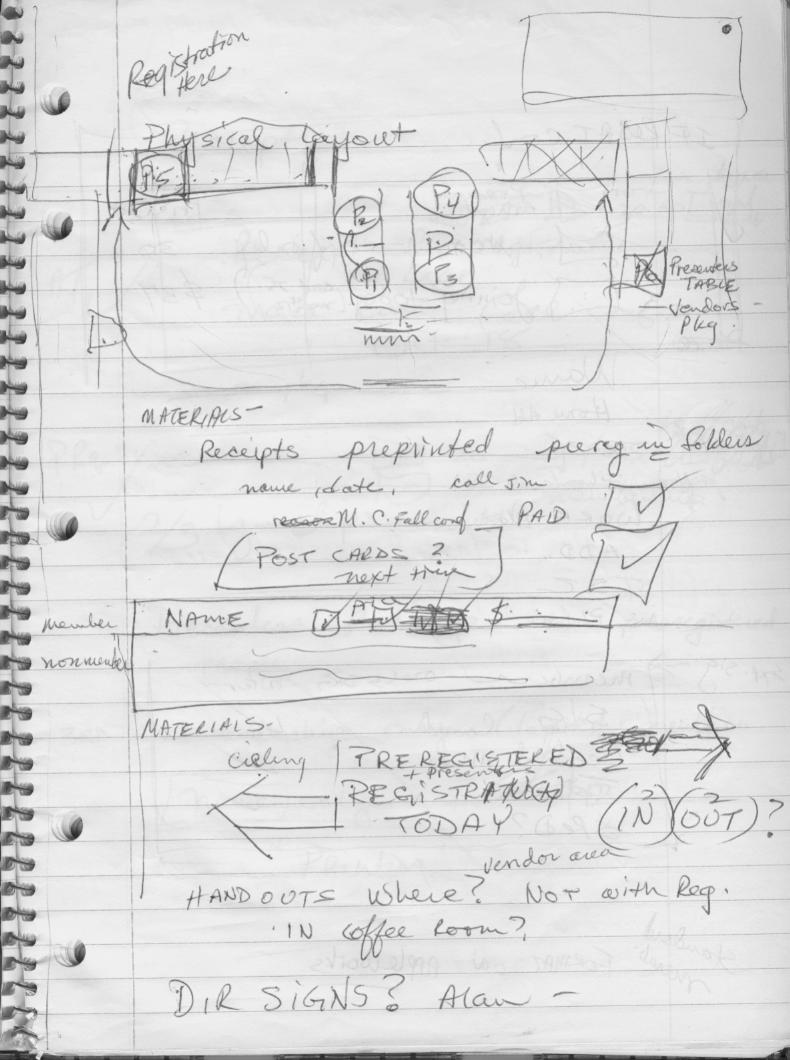 Registration
Here
Physical Layout
P5
P2
P4
P1
P3
Presenters
TABLE
Vendors -
Pkg.
MATERIALS -
Receipts preprinted prereg in folders
name, date, call Jim
M. C. Fall conf PAID
POST CARDS ?
next time
member
NAME $
nonmember
MATERIALS -
PREREGISTERED
+ presenters
REGISTRATION
TODAY
IN OUT ?
vendor area
HANDOUTS Where? NOT with Reg.
IN coffee Room?
DIR SIGNS? Alan -